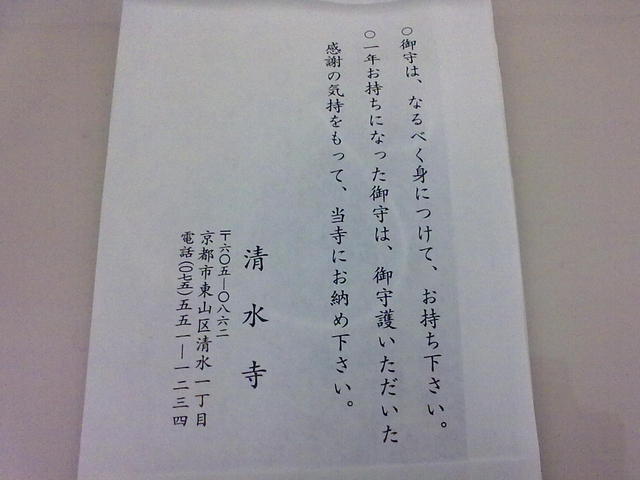 ○御守は、なるべく身につけて、お持ち下さい。
○一年お持ちになった御守は、御守護いただいた
感謝の気持をもって、当寺にお納め下さい。
清水寺
〒六〇五―〇八六二
京都市東山区清水一丁目
電話(〇七五)五五一―一二三四